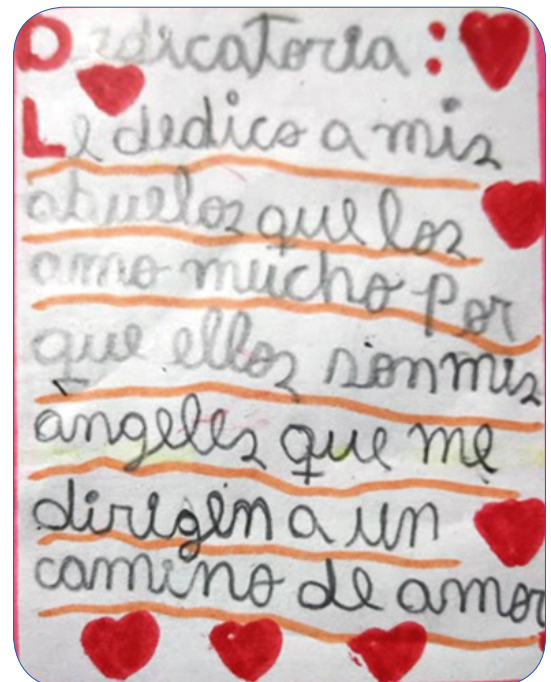 Dedicatoria:
Le dedico a mis
abuelos que los
amo mucho por
que ellos son mis
angeles que me
dirigen a un
camino de amor